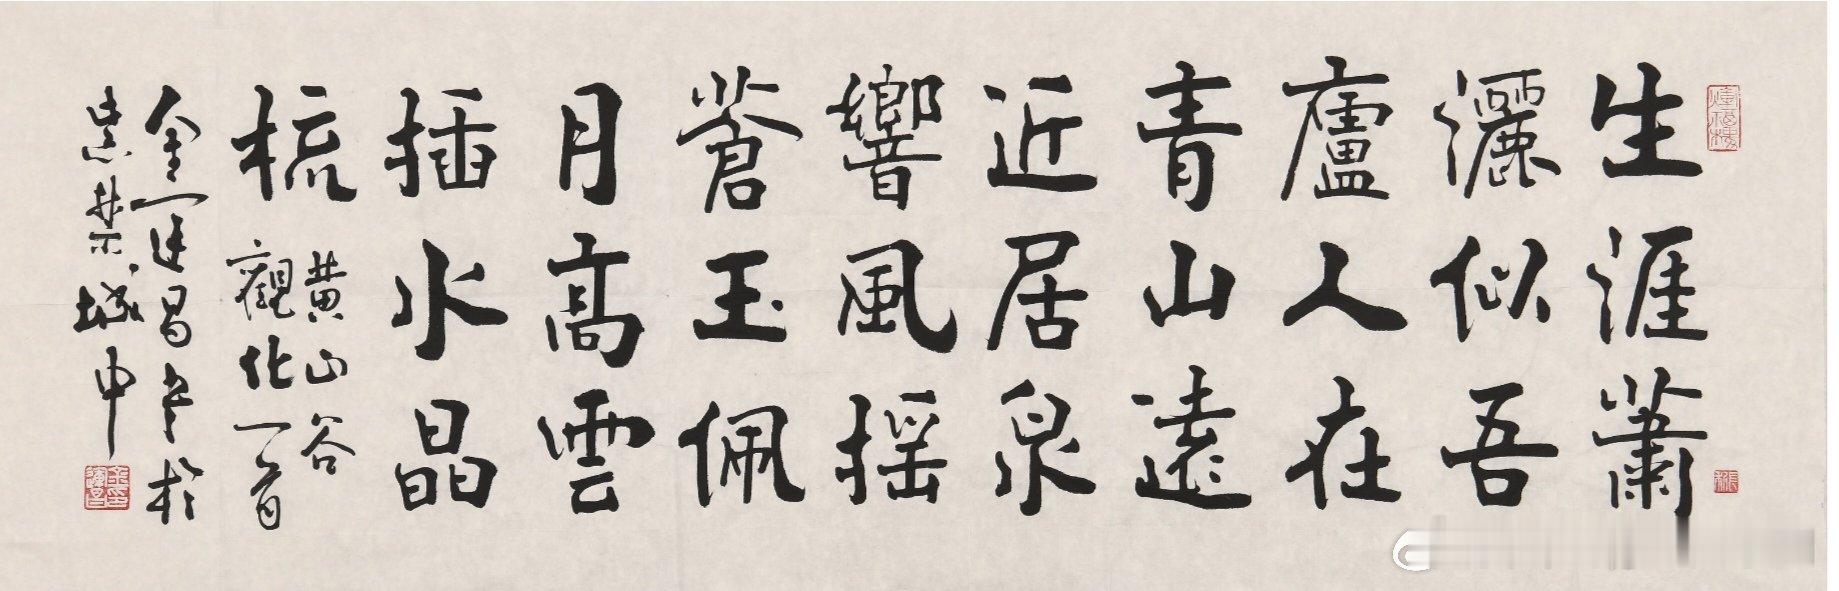 生涯蕭
灑似吾
廬人在
青山遠
近居泉
響風摇
蒼玉佩
月高雲
插水晶
梳
黄山谷
觀化一首
金運昌書於
忠棐城中